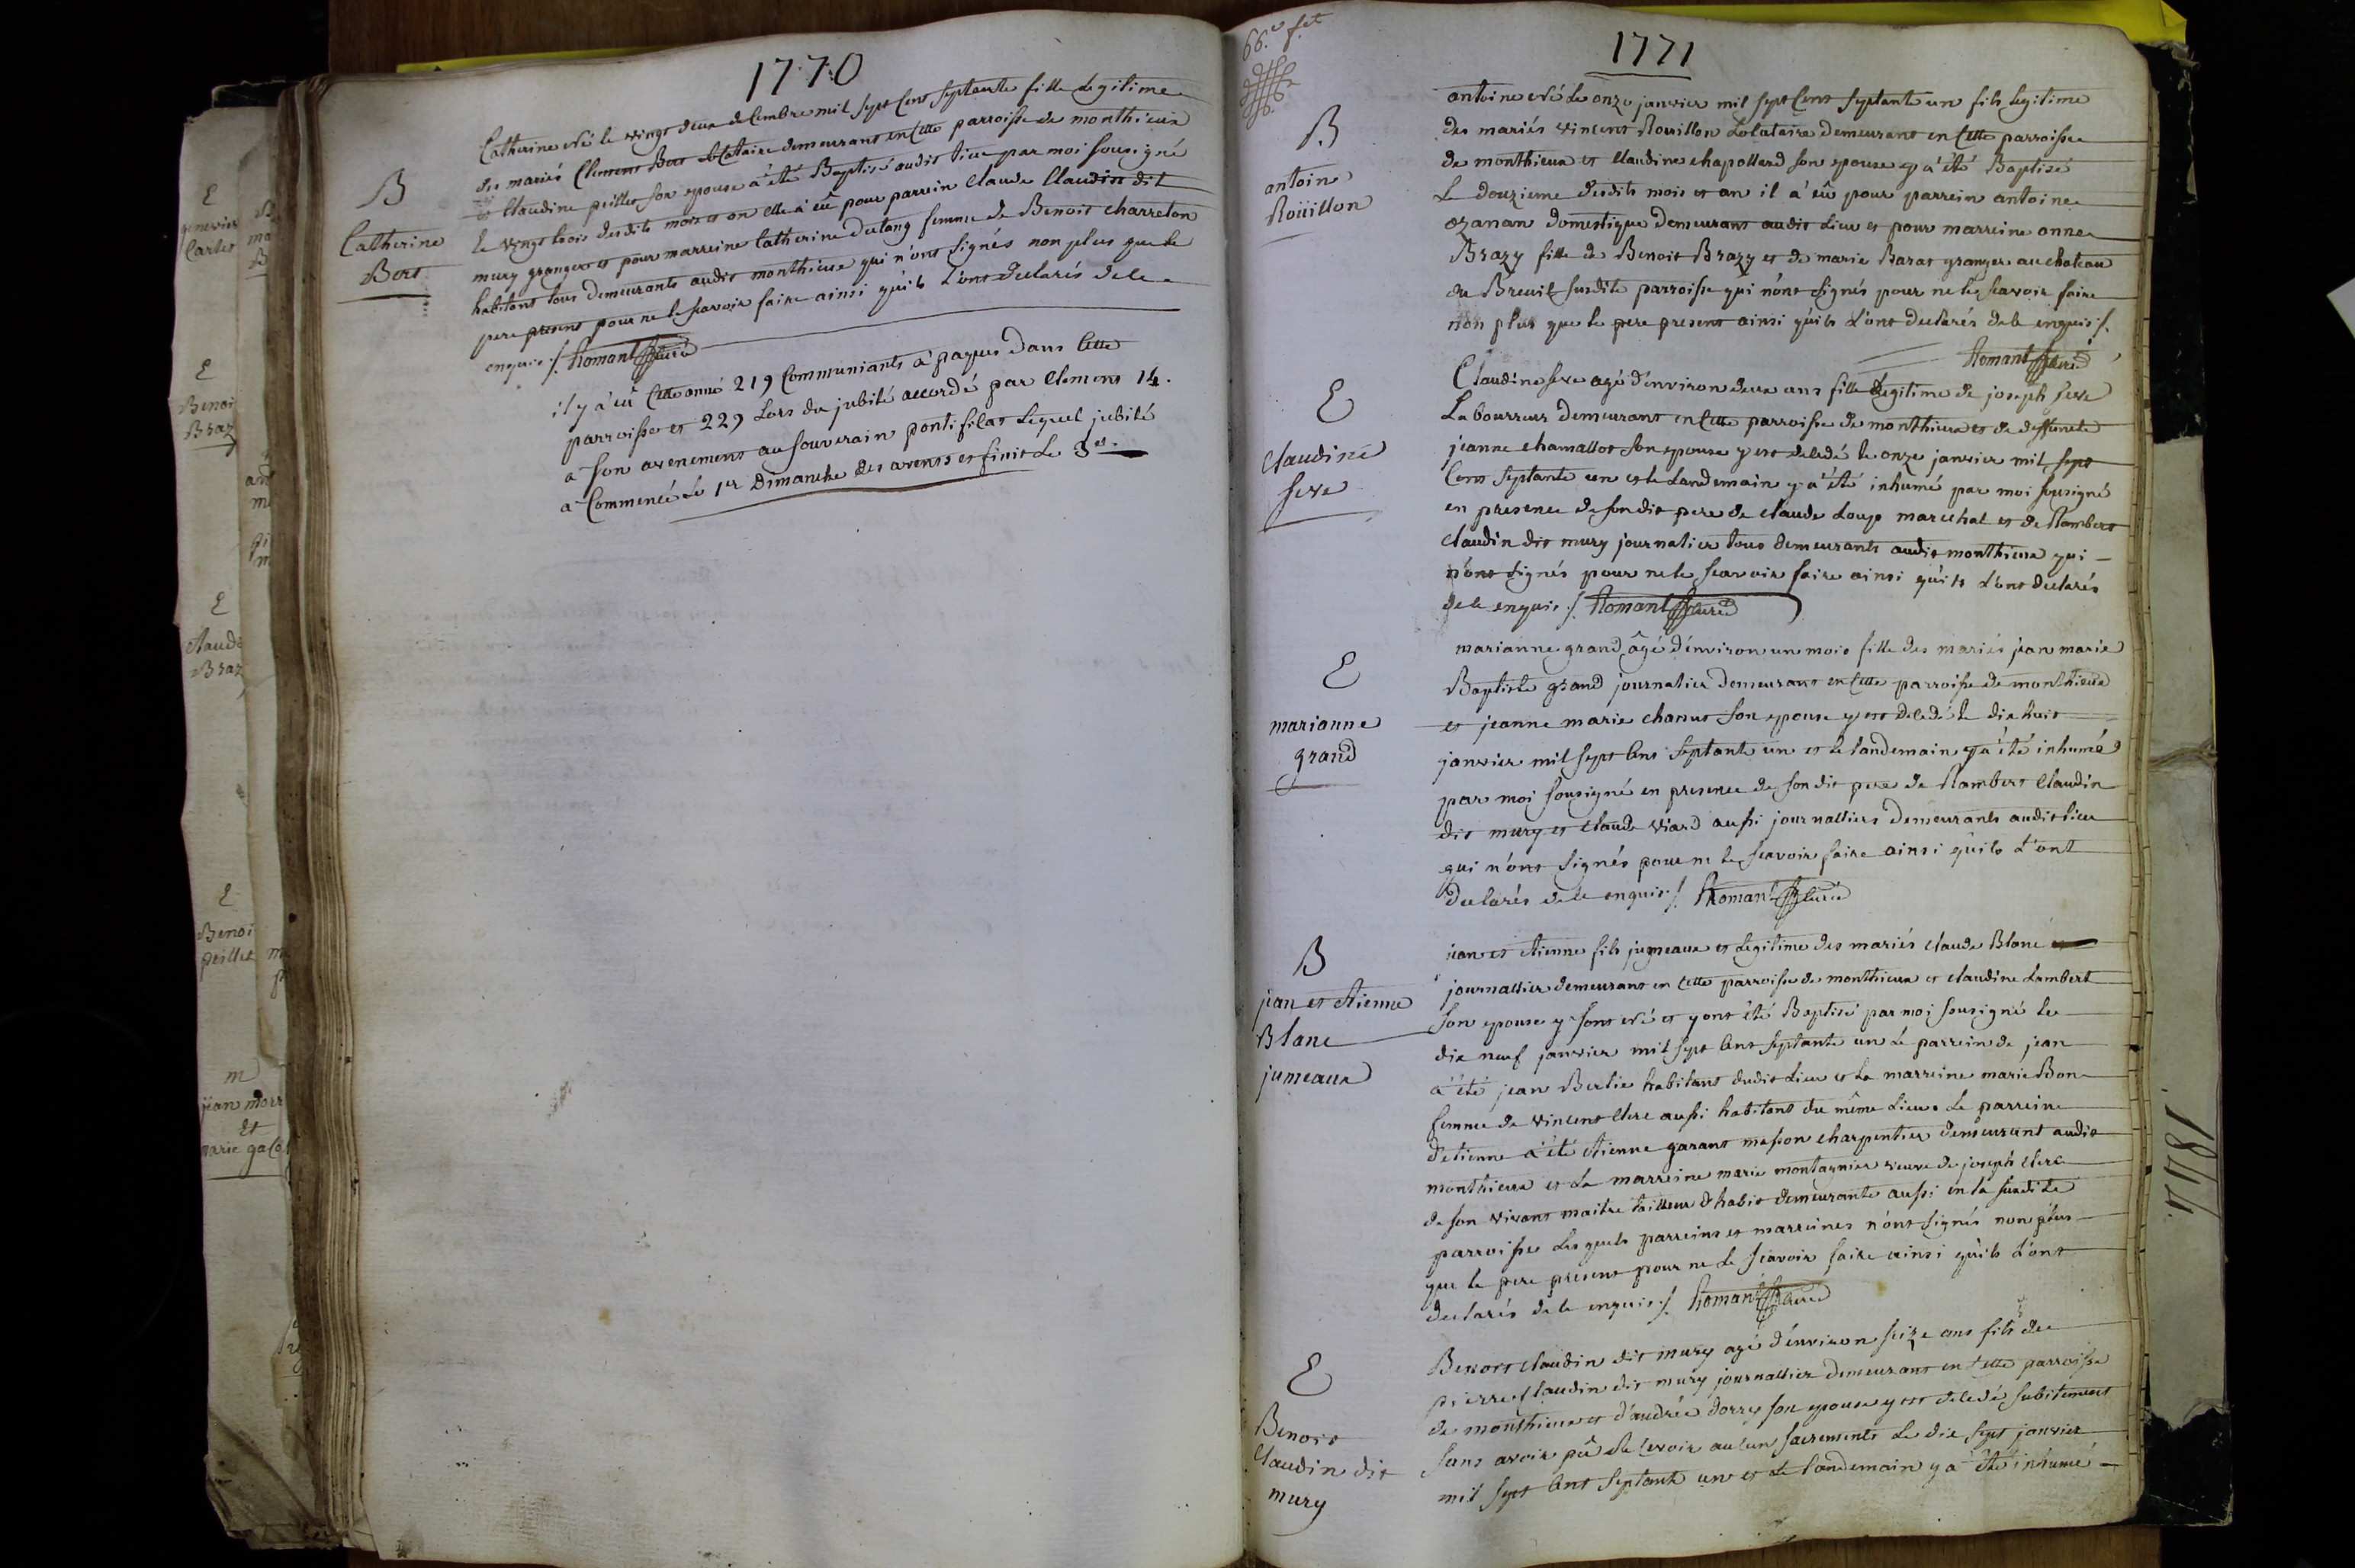 1770
B
Catherine
Bert
Catherine né le vingt deux decembre mil sept cent septante fille legitime
des mariés Clement Bert locataire demeurant en cette parroisse de monthieux
et Claudine peillet son epouse a été Baptisé audit lieu par moi sousigné
le vingt trois desdits mois et an elle a eû pour parrein Claude Claudin dit
mury granger et pour marreine Catherine dutang femme de Benoit charreton
habitant tous demeurants audit monthieux qui n'ont signés non plus que le
pere present pour ne le scavoir faire ainsi qu'ils l'ont declarés de le
enquis ./. Romant Curé
il y a eû cette anné 219 Communiants a paques dans cette
parroisse et 229 Lors du jubilé accordé par Clement 14.
a son avenement au souverain pontificat Lequel jubilé
a Commencé le 1er Dimanche des avents et finit Le 3e.
66.e f.et
1771
B
antoine
Roüillon
antoine né le onze janvier mil sept cent septante un fils legitime
des mariés vincent Rouillon Locataire demeurant en cette parroisse
de monthieux et Claudine chapolland son epouse y a été Baptisé
Le douzieme desdits mois et an il a eû pour parrein antoine
ozanan domestique demeurant audit Lieu et pour marreine anne
Brazy fille de Benoit Brazy et de marie Barat granger au chateau
du Breuil susdite parroisse qui n'ont signés pour ne le scavoir faire
non plus que le pere present ainsi qu'ils L'ont declarés de le enquis ./.
Romant Curé
E
Claudine
seve
Claudine seve agé d'environ deux ans fille Legitime de joseph seve
Laboureur demeurant en cette parroisse de monthieux et de deffuncte
jeanne chamallot son epouse y est decedé le onze janvier mil sept
cent septante un et le Landemain y a été inhumé par moi sousigné
en presence de son dit pere de claude Loup marechal et de Rambert
claudin dit mury journalier tous demeurants audit monthieux qui
n'ont signés pour ne le scavoir faire ainsi qu'ils L'ont declarés
de le enquis ./. Romant Curé
E
marianne
grand
marianne grand âgé d'environ un mois fille des mariés jean marie
Baptiste grand journalier demeurant en cette parroisse de monthieux
et jeanne marie chanut son epouse y est decedé le dix huit
janvier mil sept cent septante un et le landemain y a été inhumé
par moi sousigné en presence de son dit pere de Rambert Claudin
dit mury et claude viard aussi journalliers demeurants audit lieu
qui n'ont signés pour ne le scavoir faire ainsi qu'ils L'ont
declarés de le enquis ./. Romant Curé
B
jean et etienne
Blanc
jumeaux
jean et etienne fils jumeaux et Legitime des mariés claude Blanc
journallier demeurant en cette parroisse de monthieux et claudine Lambert
son epouse y sont né et y ont été Baptisé par moi sousigné le
dix neuf janvier mil sept cent septante un Le parrein de jean
a été jean Berlie habitant dudit Lieu et La marreine marie Bon
femme de vincent clerc aussi habitant du même Lieu. Le parrein
d'etienne a été etienne garant masson charpentier demeurant audit
monthieux et La marreine marie montagnier veuve de joseph clerc
de son vivant maitre tailleur d'habit demeurante aussi en la susdite
parroisse Lesquels parreins et marreines n'ont signés non plus
que le pere present pour ne Le scavoir faire ainsi qu'ils L'ont
declarés de le enquis ./. Romant Curé
E
Benoit
Claudin dit
mury
Benoit claudin dit mury agé d'environ seize ans fils de
pierre Claudin dit mury journallier demeurant en cette parroisse
de monthieux et d'andrée dorry son epouse y est decedé subitement
sans avoir pû recevoir aucun sacrements Le dix sept janvier
mil sept cent septante un et Le landemain y a été inhumé
E
genevieve
Carlet
E
Benoi
Braz
E
Claude
Braz
E
Benoi
peillet
m
jean
et
marie
1844.